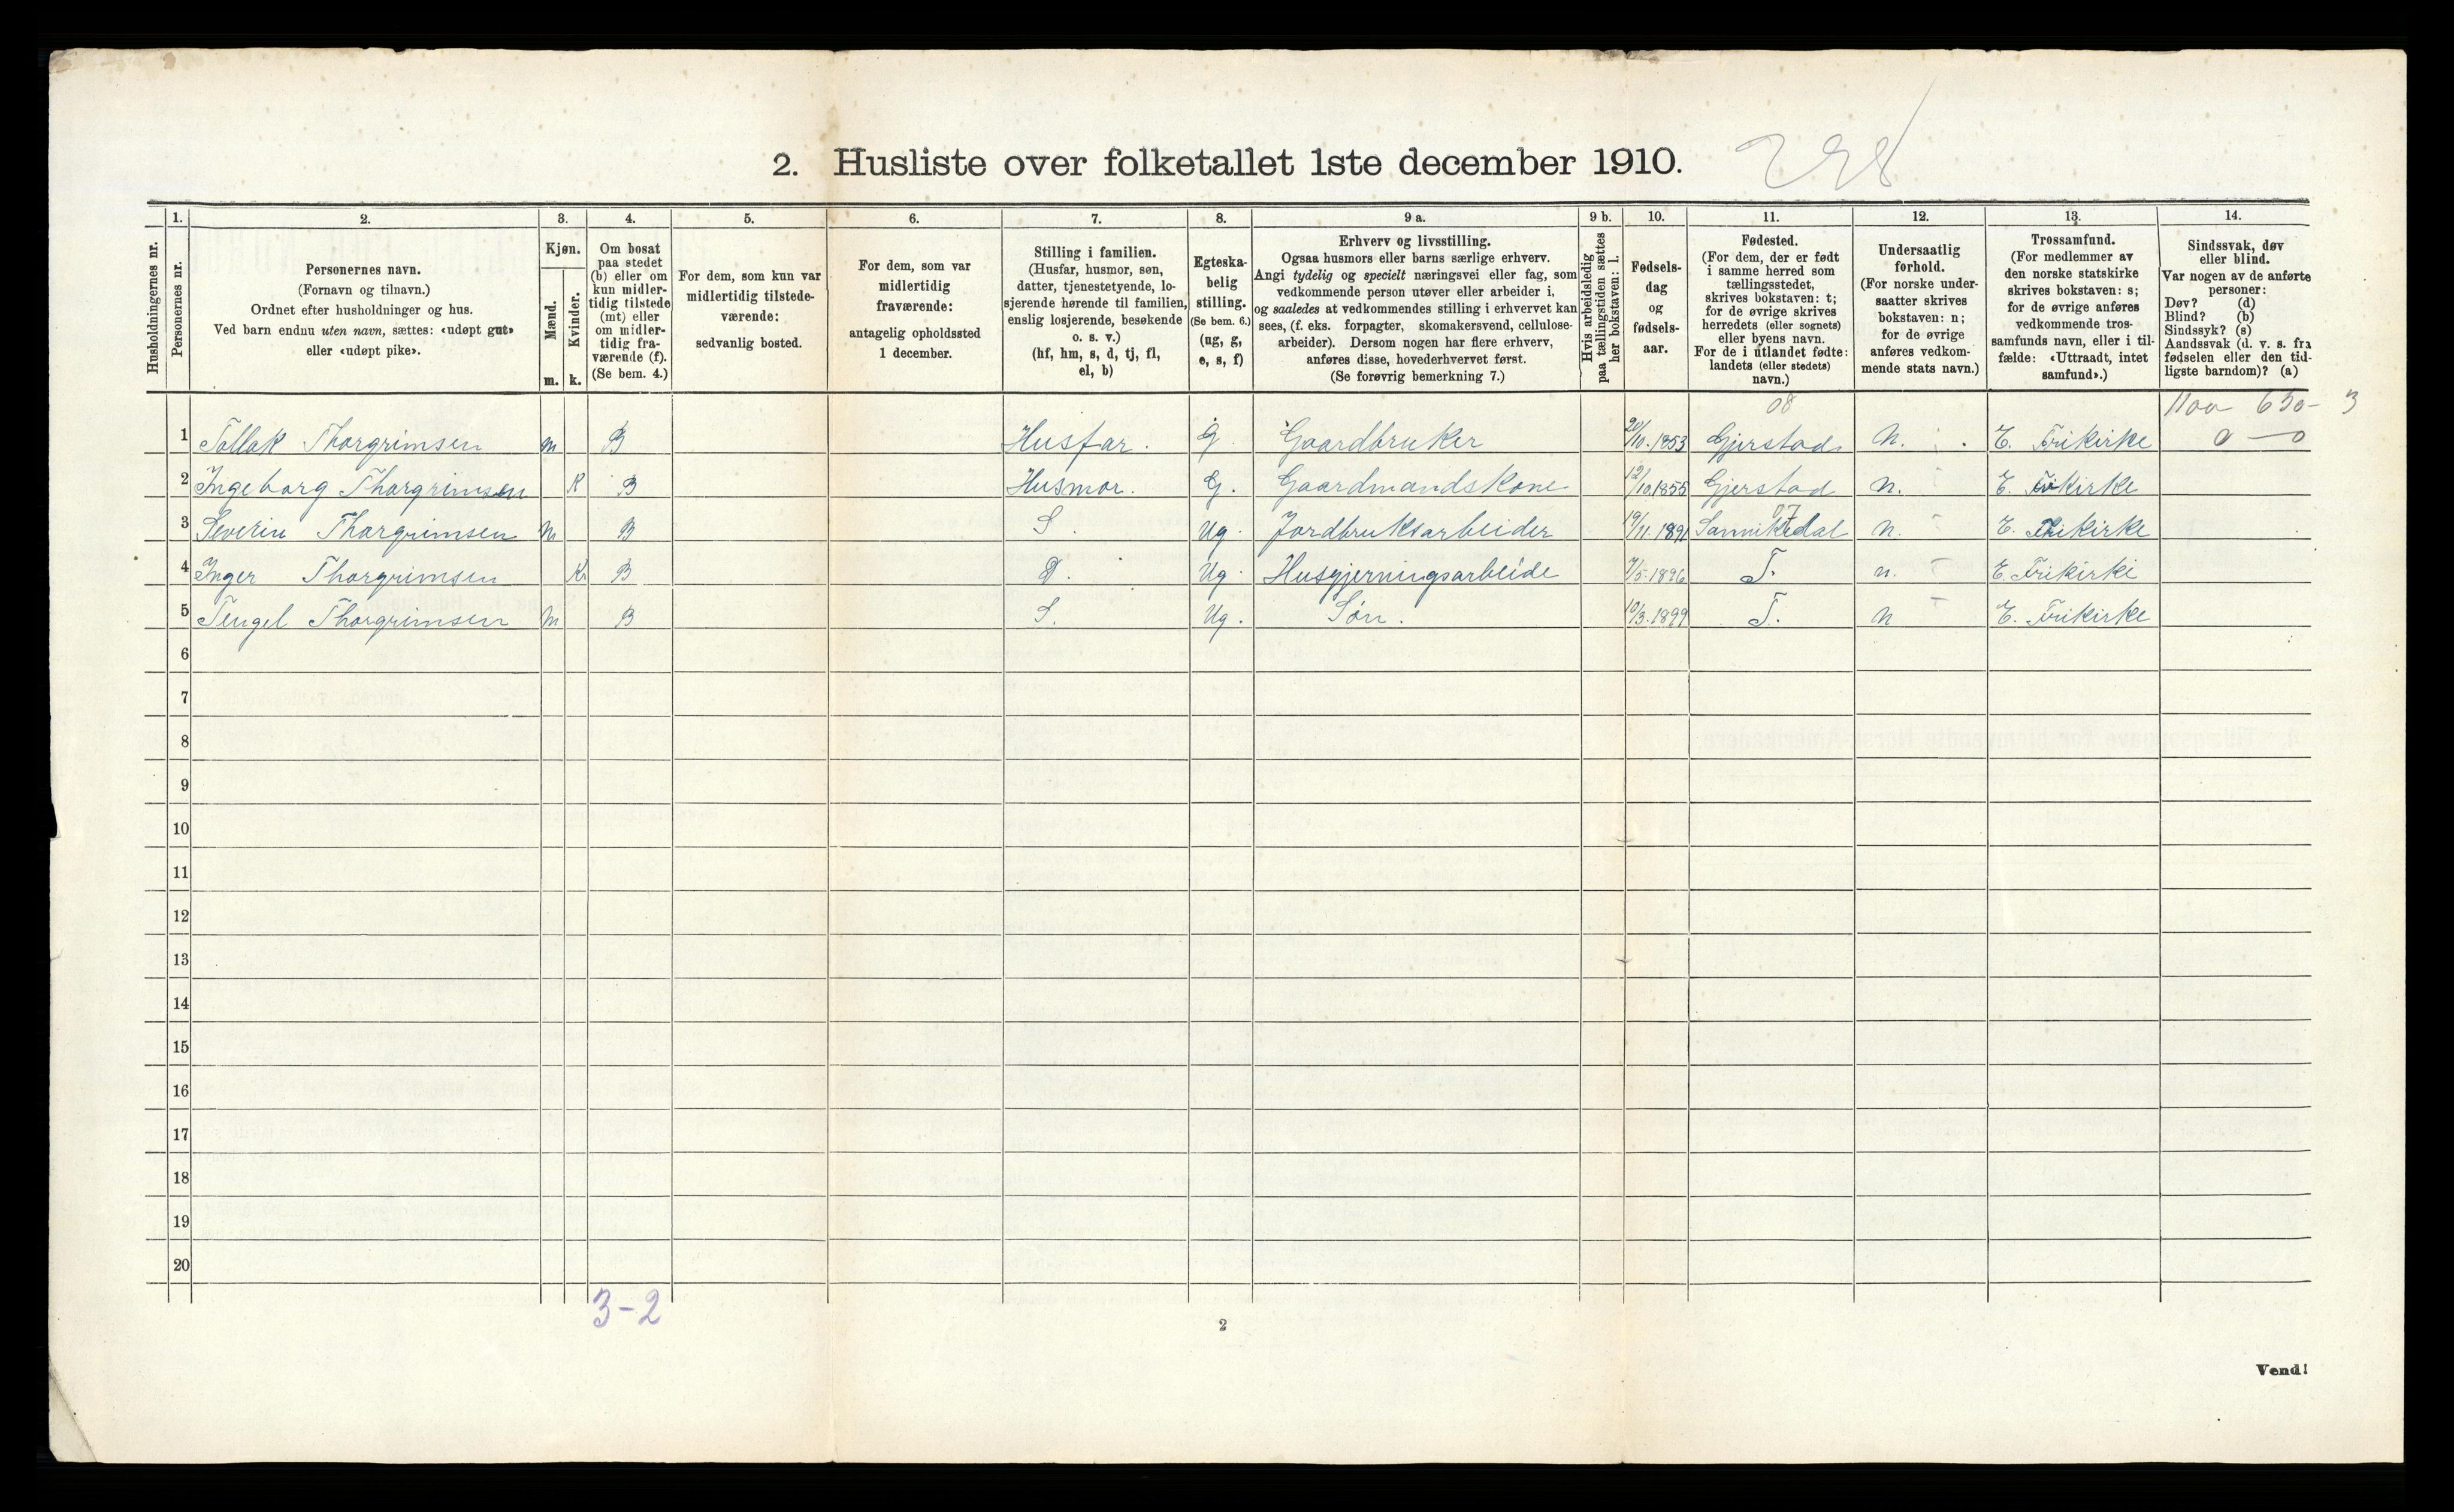 2. Husliste over folketallet 1ste december 1910.
Husholdningernes nr.
1.
Personernes nr.
2.
Personernes navn.
(Fornavn og tilnavn.)
Ordnet efter husholdninger og hus.
Ved barn endnu uten navn, sættes: «udøpt gut»
eller «udøpt pike».
3.
Kjøn.
Mænd.
Kvinder.
m. k.
4.
Om bosat
paa stedet
(b) eller om
kun midler-
tidig tilstede
(mt) eller
om midler-
tidig fra-
værende (f).
(Se bem. 4.)
5.
For dem, som kun var
midlertidig tilstede-
værende:
sedvanlig bosted.
6.
For dem, som var
midlertidig
fraværende:
antagelig opholdssted
1 december.
7.
Stilling i familien.
(Husfar, husmor, søn,
datter, tjenestetyende, lo-
sjerende hørende til familien,
enslig losjerende, besøkende
o. s. v.)
(hf, hm, s, d, tj, fl,
el, b)
8.
Egteska-
belig
stilling.
(Se bem. 6.)
(ug, g,
e, s, f)
9 a.
Erhverv og livsstilling.
Ogsaa husmors eller barns særlige erhverv.
Angi tydelig og specielt næringsvei eller fag, som
vedkommende person utøver eller arbeider i,
og saaledes at vedkommendes stilling i erhvervet kan
sees, (f. eks. forpagter, skomakersvend, cellulose-
arbeider). Dersom nogen har flere erhverv,
anføres disse, hovederhvervet først.
(Se forøvrig bemerkning 7.)
9 b.
Hvis arbeidsledig
paa tællingstiden sættes
her bokstaven: l.
10.
Fødsels-
dag
og
fødsels-
aar.
11.
Fødested.
(For dem, der er født
i samme herred som
tællingsstedet,
skrives bokstaven: t;
for de øvrige skrives
herredets (eller sognets)
eller byens navn.
For de i utlandet fødte:
landets (eller stedets)
navn.)
12.
Undersaatlig
forhold.
(For norske under-
saatter skrives
bokstaven: n;
for de øvrige
anføres vedkom-
mende stats navn.)
13.
Trossamfund.
(For medlemmer av
den norske statskirke
skrives bokstaven: s;
for de øvrige anføres
vedkommende tros-
samfunds navn, eller i til-
fælde: «Uttraadt, intet
samfund».)
14.
Sindssvak, døv
eller blind.
Var nogen av de anførte
personer:
Døv? (d)
Blind? (b)
Sindssyk? (s)
Aandssvak (d. v. s. fra
fødselen eller den tid-
ligste barndom)? (a)
08
1 Tollak Thorgrimsen m B Husfar. G. Gaardbruker 20/10.1853 Gjerstad n. E. Frikirke 0 — 0
2 Ingeborg Thorgrimsen K B Husmor. G. Gaardmandskone 12/10.1855 Gjerstad n. E. Frikirke
07
3 Severin Thorgrimsen m B S. Ug. Jordbruksarbeider 19/11.1891 Sannikedal n. E. Frikirke
4 Inger Thorgrimsen K B D. Ug. Husgjerningsarbeide 7/5.1896 T. n. E. Frikirke
5 Tengel Thorgrimsen m B S. Ug. Søn. 10/3.1899 T. n E. Frikirke
6
7
8
9
10
11
12
13
14
15
16
17
18
19
20
3-2
2
Vend!